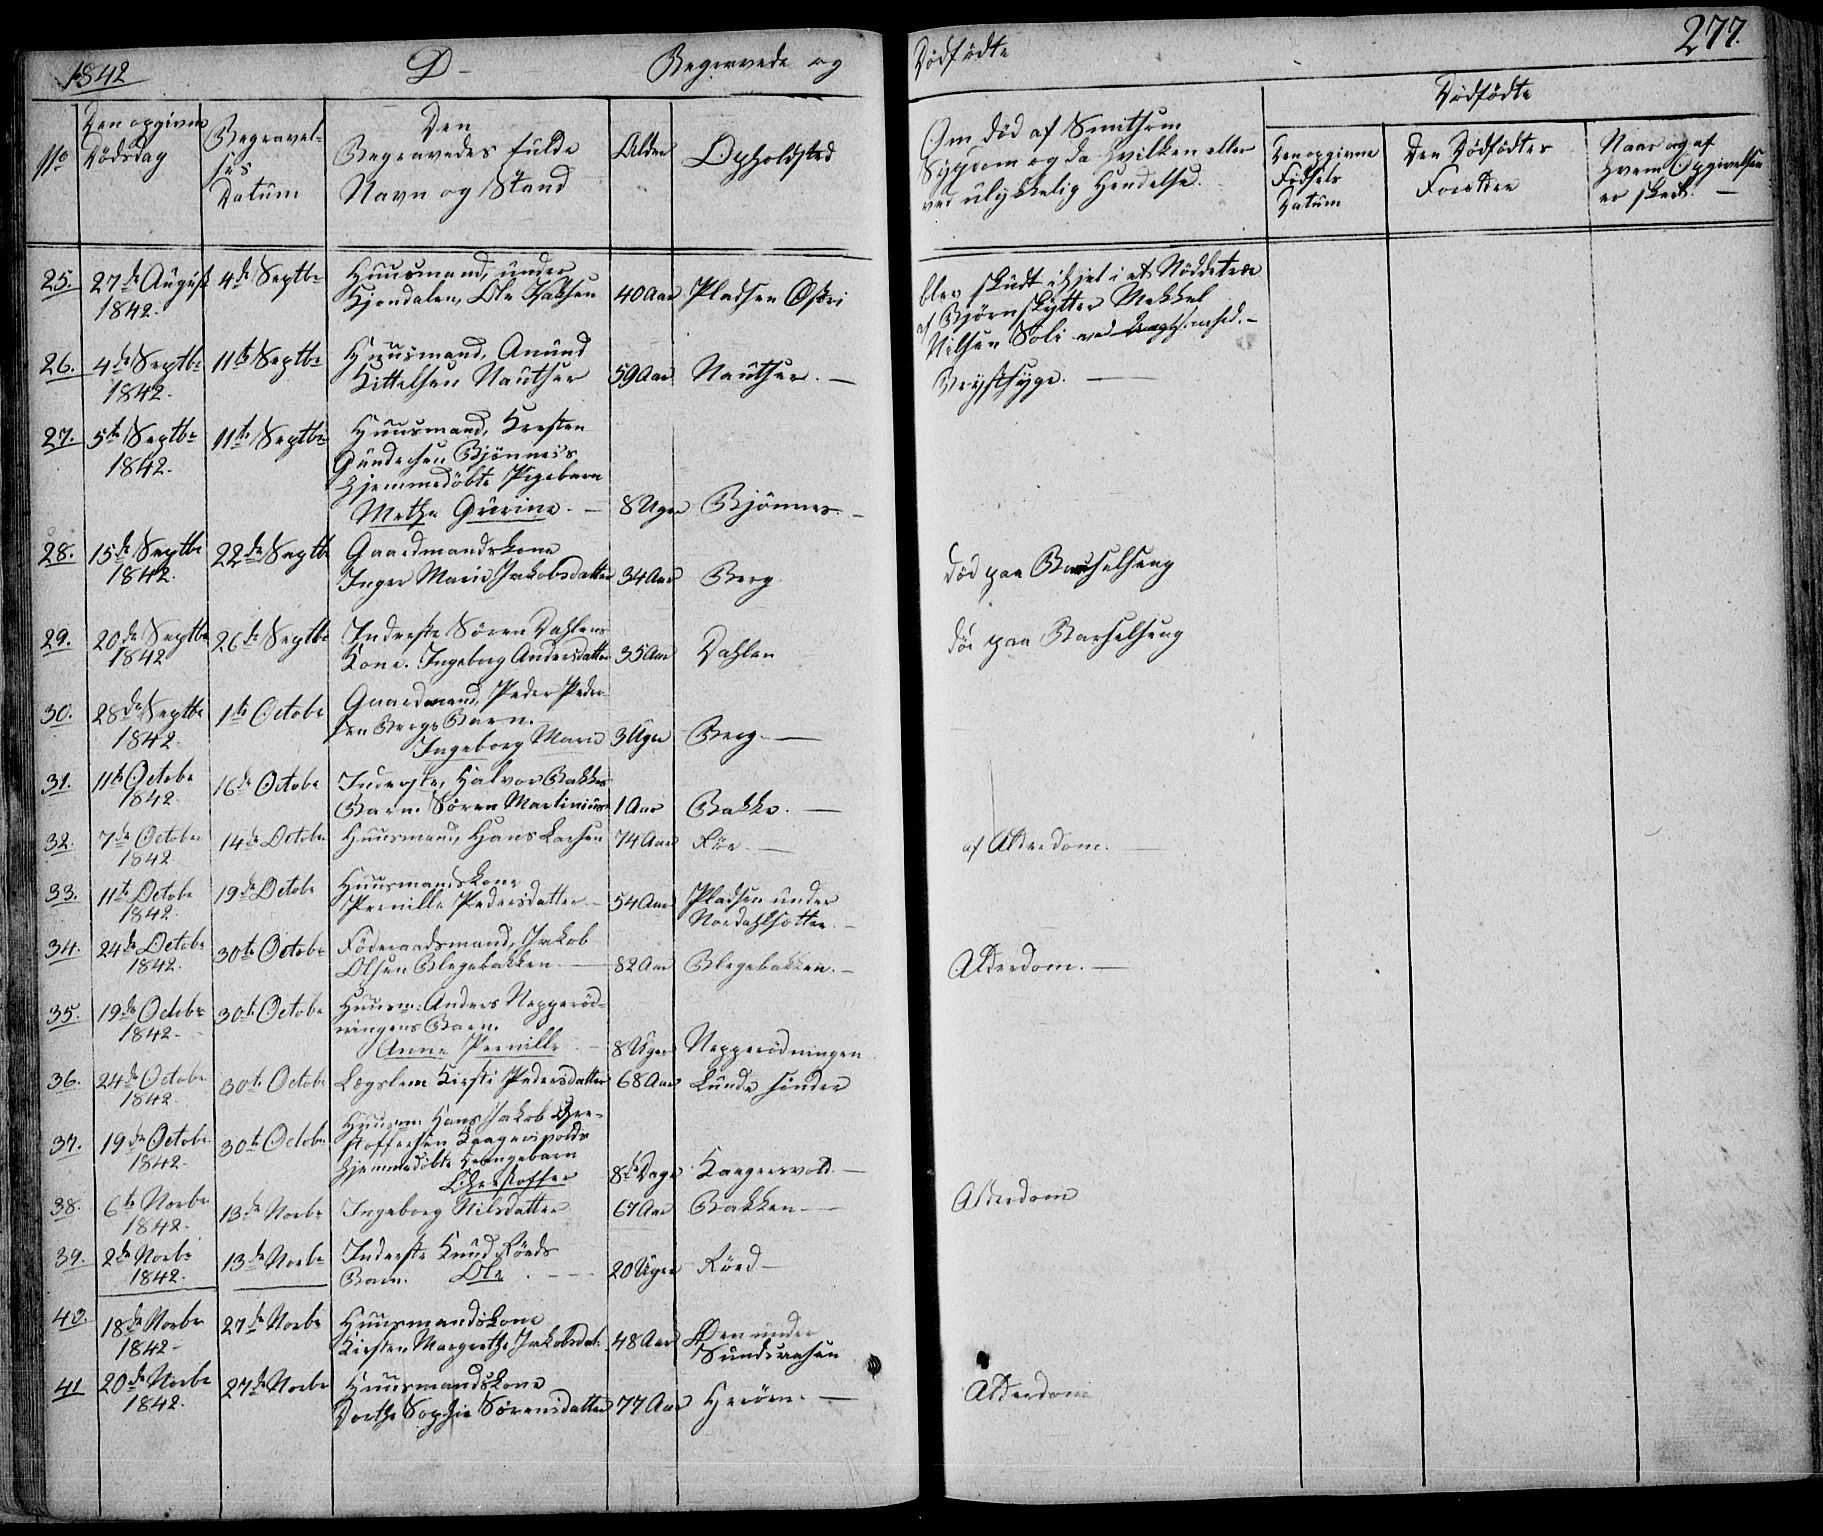 1842 D - Begravede og Dødfødte 277.
No
Den opgivne Dødsdag
Begravelses Datum
Den Begravedes fulde Navn og Stand
Alder
Opholdsted
Om død af Smitsom
Sygdom og da hvilken eller
ved ulykkelig Hendelse.
Dødfødte
Den opgivne Fødsels Datum
Den Dødfødtes Forældre
Naar og af
hvem Opgivelsen
er skeet. -
25. 27de August 4de Septbr Huusmand, under
1842. Ole 40 Aar Pladsen
blev skudt ihjel i et Nøddetræ
af Bjørnskytter
Nilsen Soli ved
26. 4de Septbr 11te Septbr Huusmand, Amund
1842. Kittelsen Nautser 59 Aar Nautser. - Brystsyge. -
27. 5te Septbr 11te Septbr Huusmand, Kresten
1842. Bjønnes's
hjemmedøbte Pigebarn
Methe Gurine. - 8 Uger Bjönnes. -
28. 15de Septbr 22de Septbr Gaardmandskone
1842. Inger Marie Jakobsdatter 34 Aar Berg død paa Barselseng
29. 20de Septbr 26de Septbr Inderste Søren Dahlens
1842 Kone. Ingeborg Andersdatter 35 Aar Dahlen død paa Barselseng
30. 28de Septbr 1te Octobr Gaardmand, Peder Peder-
1842. sen Bergs Barn.
Ingeborg Marie 3 Uger Berg. -
31. 11te Octobr 16de Octobr Inderste, Halvor Bakkes
1842. Barn. Søren Martinius 1 Aar Bakke. -
32. 7de October 14de October Huusmand, Hans Larsen 74 Aar - af Alderdom. -
1842
33. 11te Octobr 19de Octobr Huusmandskone
1842. Pernille Pedersdatter - 54 Aar Pladsen under
Nordahlsætter. -
34. 24de Octobr 30te Octobr Föderaadsmand, Jakob
1842. Olsen Blegebakken - 82 Aar Blegebakken. - Alderdom. -
35. 19de Octobr 30te Octobr Huusm: Anders Nepperöd-
1842. ningens Barn.
Anne Pernille - 8 Uger Nepperödningen
36. 24de Octobr 30te Octobr Lægslem Kirsti Pedersdatter 68 Aar Lunde söndre
1842.
37. 19de October 30te Octobr Huusm: Hans Jakob Chri-
1842. stoffersen
hjemmedøbte Drengebarn
Christoffer 8te Dage
38. 6te Novbr 13de Novbr Ingeborg Nilsdatter 67 Aar Bakken - Alderdom
1842.
39. 2de Novbr 13de Novbr Inderste Knud Röeds
1842. Barn. Ole - 20 Uger Röed -
40. 18de Novbr 27de Novbr Huusmandskone
1842 - Kirsten Margrethe Jakobsdat. 48 Aar under
41 20de Novbr 27de Novbr Huusmandskone
1842. Dorthe Sophie Sörensdatter 77 Aar Heröen. - Alderdom